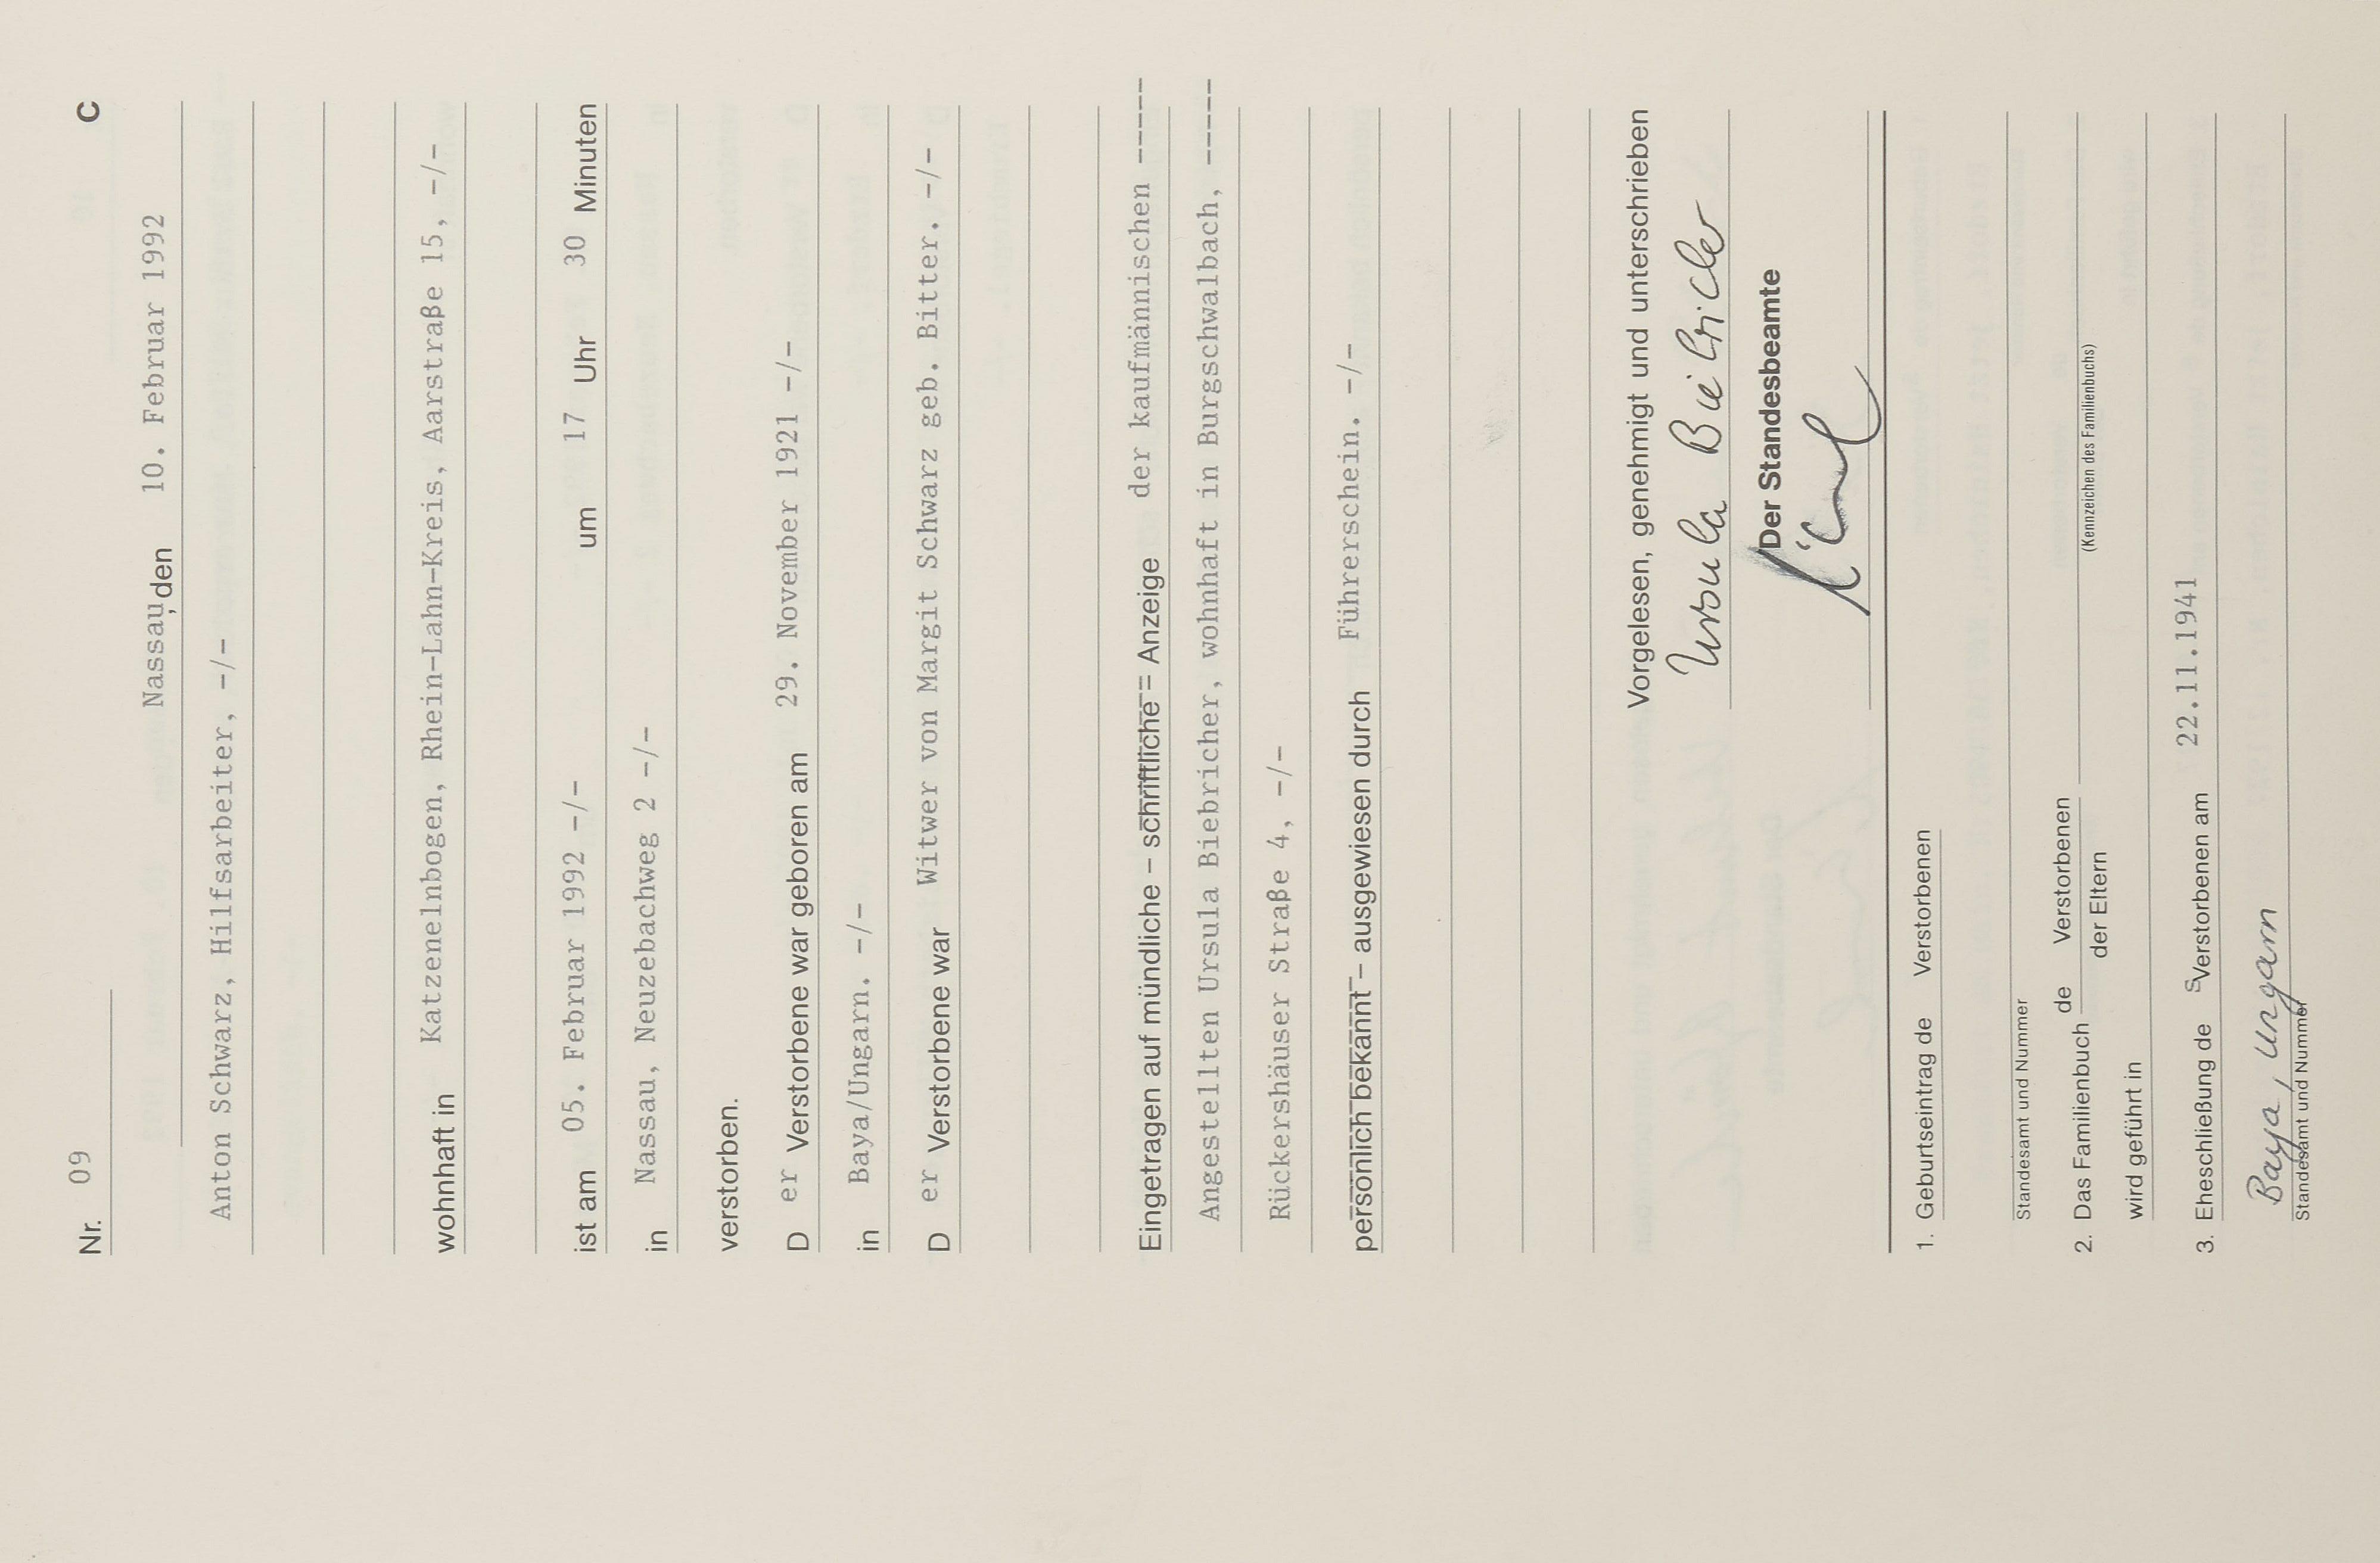 Nr. 09 C
Nassau, den 10. Februar 1992
Anton Schwarz, Hilfsarbeiter, -/-
wohnhaft in Katzenelnbogen, Rhein-Lahn-Kreis, Aarstraße 15, -/-
ist am 05. Februar 1992 -/- um 17 Uhr 30 Minuten
in Nassau, Neuzebachweg 2 -/-
verstorben.
D er Verstorbene war geboren am 29. November 1921 -/-
in Baya/Ungarn. -/-
D er Verstorbene war Witwer von Margit Schwarz geb. Bitter. -/-
Eingetragen auf mündliche – schriftliche – Anzeige der kaufmännischen ------
Angestellten Ursula Biebricher, wohnhaft in Burgschwalbach, ------
Rückershäuser Straße 4, -/-
persönlich bekannt – ausgewiesen durch Führerschein. -/-
Vorgelesen, genehmigt und unterschrieben
Ursula Biebricher
Der Standesbeamte
1. Geburtseintrag de Verstorbenen
Standesamt und Nummer
2. Das Familienbuch de Verstorbenen
der Eltern
(Kennzeichen des Familienbuchs)
wird geführt in
3. Eheschließung de s Verstorbenen am 22.11.1941
Baya, Ungarn
Standesamt und Nummer